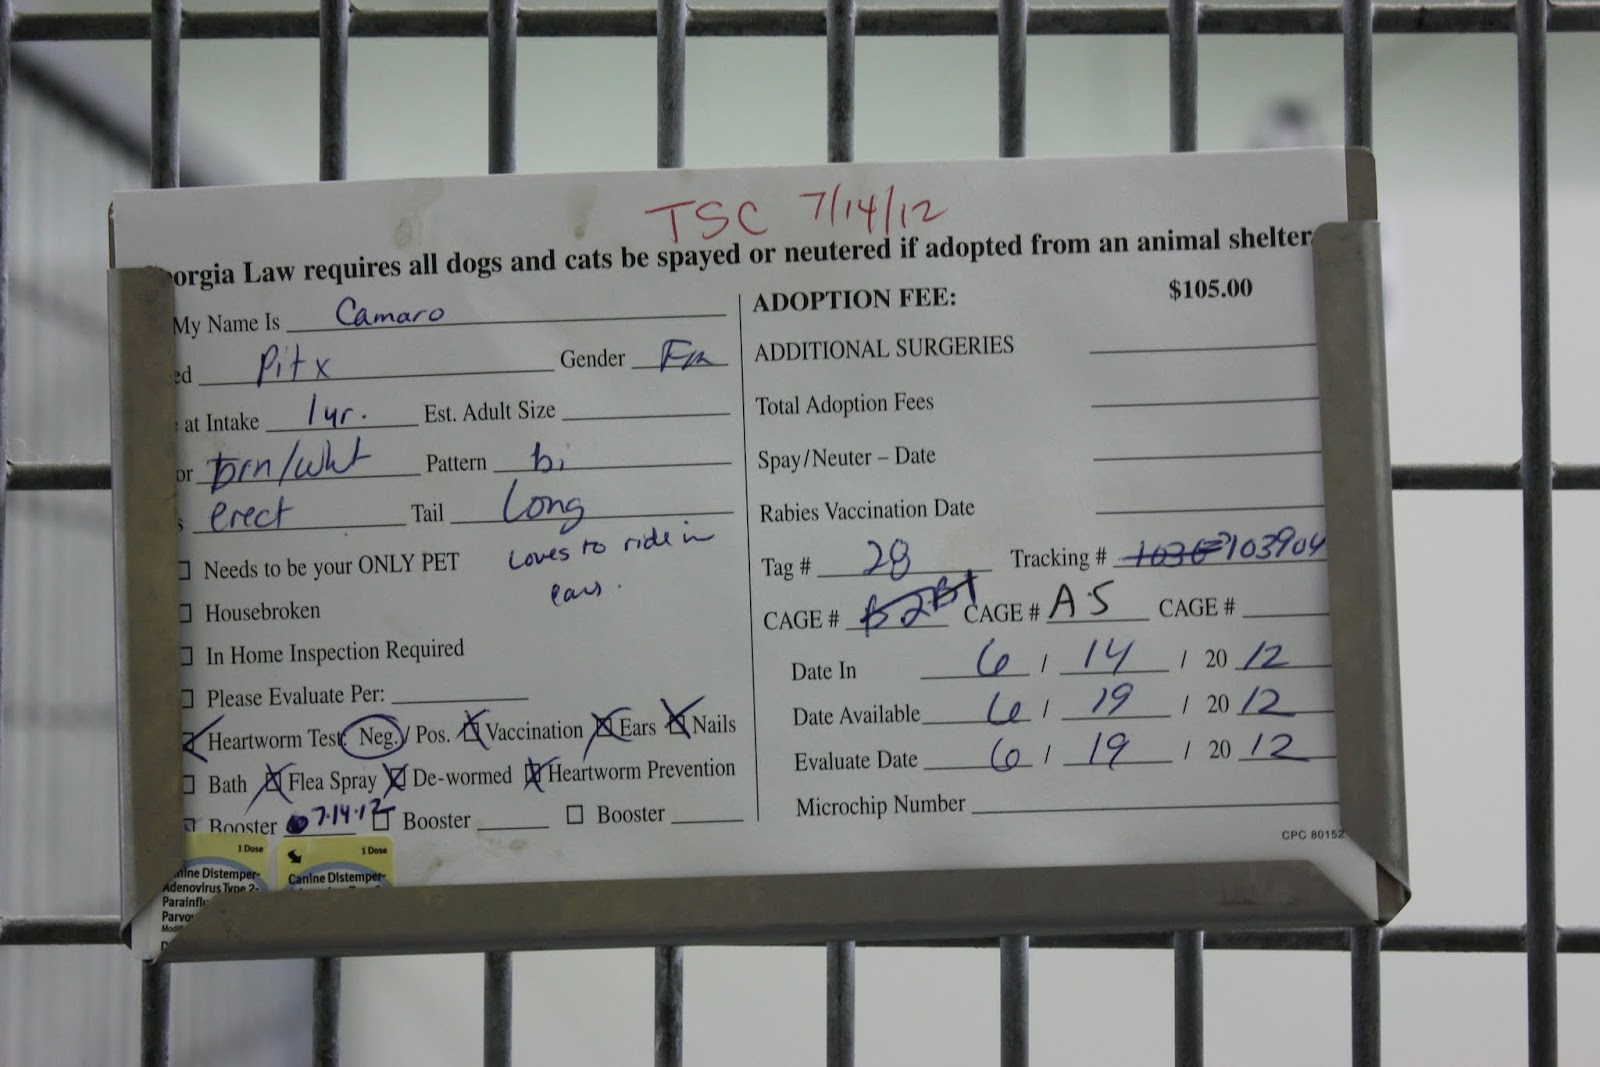 TSC 7/14/12
eorgia Law requires all dogs and cats be spayed or neutered if adopted from an animal shelter
My Name Is Camaro
ed Pit x Gender Fm
at Intake 1yr. Est. Adult Size
or brn/wht Pattern bi
s erect Tail Long
Loves to ride in
cars.
Needs to be your ONLY PET
Housebroken
In Home Inspection Required
Please Evaluate Per:
Heartworm Test: Neg. / Pos. Vaccination Ears Nails
Bath Flea Spray De-wormed Heartworm Prevention
Booster 7.14.12 Booster Booster
ADOPTION FEE: $105.00
ADDITIONAL SURGERIES
Total Adoption Fees
Spay/Neuter – Date
Rabies Vaccination Date
Tag # 28 Tracking # 103904
CAGE # B2 B1 CAGE # A5 CAGE #
Date In 6 / 14 / 20 12
Date Available 6 / 19 / 20 12
Evaluate Date 6 / 19 / 20 12
Microchip Number
CPC 80152
1 Dose
nine Distemper-
Adenovirus Type 2-
Parainflu
Parvo
Modif
1 Dose
Canine Distemper-